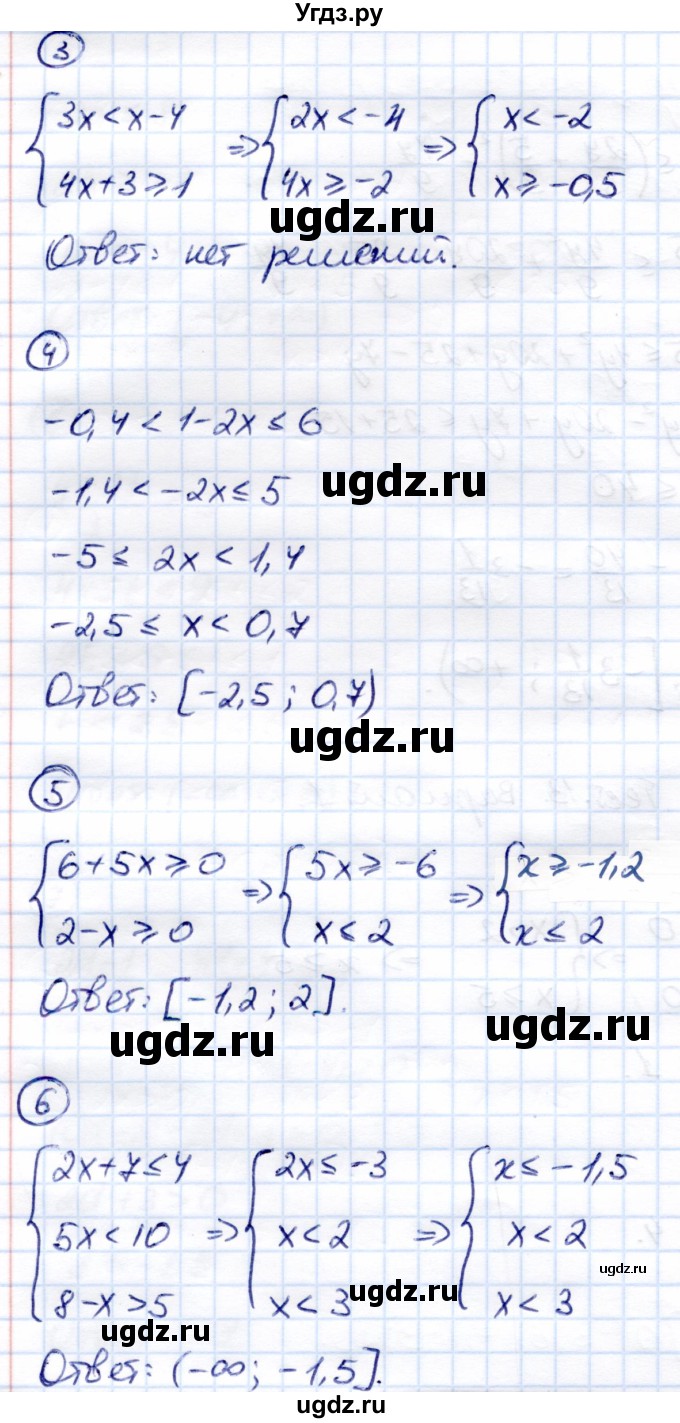 Угдз.ру
3
{ 3x < x - 4 ⇒ { 2x < -4 ⇒ { x < -2
4x + 3 ⩾ 1 4x ⩾ -2 x ⩾ -0,5
ugdz.ru
Ответ: нет решений.
4
-0,4 < 1 - 2x ≤ 6
-1,4 < -2x ≤ 5
ugdz.ru
-5 ≤ 2x < 1,4
-2,5 ≤ x < 0,7
Ответ: [-2,5 ; 0,7)
ugdz.ru
5
{ 6 + 5x ⩾ 0 ⇒ { 5x ⩾ -6 ⇒ { x ⩾ -1,2
2 - x ⩾ 0 x ≤ 2 x ≤ 2
Ответ: [-1,2 ; 2].
ugdz.ru
ugdz.ru
6
{ 2x + 7 ≤ 4 ⇒ { 2x ≤ -3 ⇒ { x ≤ -1,5
5x < 10 x < 2 x < 2
ugdz.ru
8 - x > 5 x < 3 x < 3
ugdz.ru
ugdz.ru
Ответ: (-∞ ; -1,5].
ugdz.ru